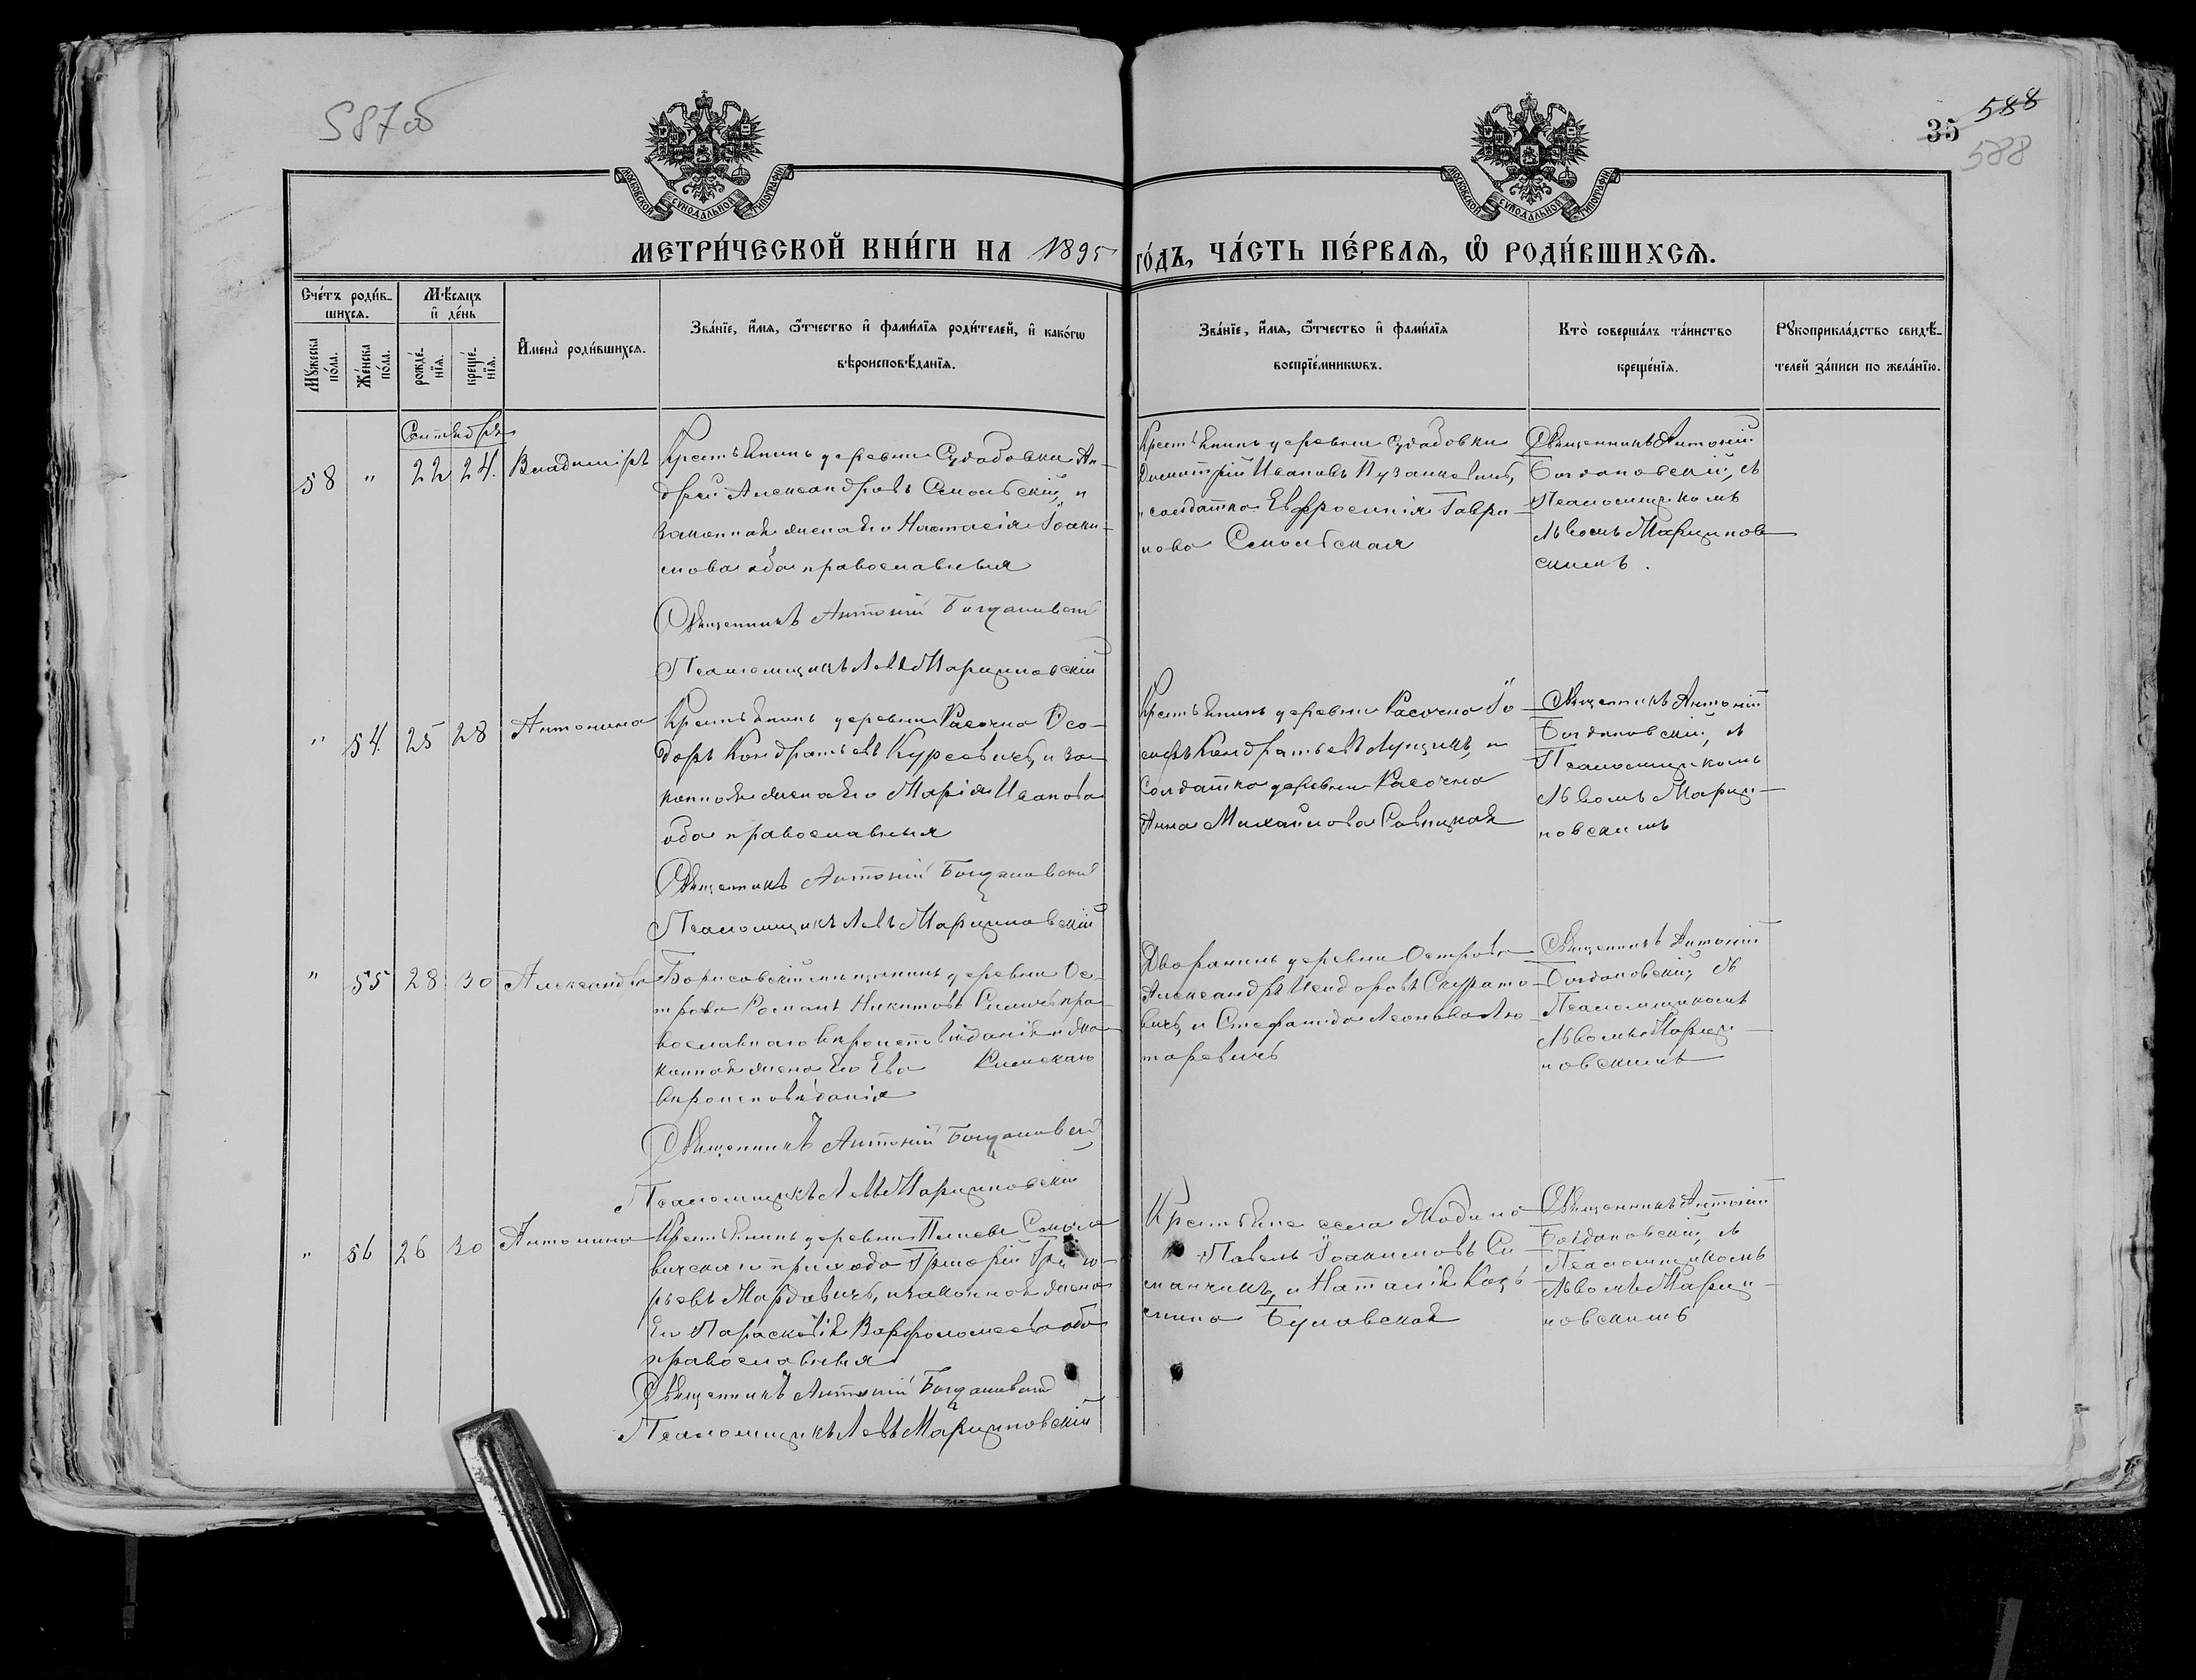 587об
588
35
588
МОСКОВСКОЙ СУНОДАЛЬНОЙ ТИПОГРАФІИ
МОСКОВСКОЙ СУНОДАЛЬНОЙ ТИПОГРАФІИ
МЕТРИ́ЧЕСКОЙ КНИ́ГИ НА 1895 ГО́ДЪ, ЧА́СТЬ ПЕ́РВАЯ, Ѡ РОДИ́ВШИХСѦ.
Сче́тъ роди́в-
шихсѧ.
Мѣ́сѧцъ
и де́нь
Мꙋ́жеска по́ла.
Же́нска по́ла.
рожде́-нїѧ.
креще́-нїѧ.
Имена̀ роди́вшихсѧ.
Зва́нїе, и́мѧ, ѻ́тчество и фами́лїѧ роди́телей, и како́гѡ
вѣроисповѣ́данїѧ.
Зва́нїе, и́мѧ, ѻ́тчество и фами́лїѧ
воспрїе́мникѡвъ.
Кто̀ соверша́лъ та́инство
креще́нїѧ.
Рꙋкоприкла́дство свидѣ́-
телей за́писи по жела́нїю.
Сентября
58 " 22 24. Владиміръ
Крестьянинъ деревни Судобовки Ан-
дрей Александровъ Смольскій, и
законная жена его Настасія Іоаки-
мова оба православныя
Священникъ Антоній Богдановскій
Псаломщикъ Левъ Марциновскій
Крестьянинъ деревни Судобовки
Димитрій Ивановъ Пузанкевичъ,
и солдатка Евфросинія Гаври-
лова Смольская
Священникъ Антоній
Богдановскій, съ
Псаломщикомъ
Львомъ Марцинов-
скимъ.
" 54. 25 28 Антонина
Крестьянинъ деревни Расочна Ѳео-
доръ Кондратьевъ Курсевичъ, и за-
конная жена его Марія Иванова
оба православныя
Священникъ Антоній Богдановскій
Псаломщикъ Левъ Марциновскій
Крестьянинъ деревни Расочна Іо-
сифъ Кондратьевъ Лущикъ, и
Солдатка деревни Расочна
Анна Михайлова Савицкая
Священникъ Антоній
Богдановскій, съ
Псаломщикомъ
Львомъ Марци-
новскимъ
" 55 28 30 Александра
Борисовскій мѣщанинъ деревни Ос-
трова Романъ Никитовъ пра-
вославнаго вѣроисповѣданія и за-
конная жена его Ева Римскаго
вѣроисповѣданія
Священникъ Антоній Богдановскій
Псаломщикъ Левъ Марциновскій
Дворянинъ деревни Острова
Александръ Исидоровъ Скурато-
вичъ, и Стефанида Леонова Лю-
таревичъ
Священникъ Антоній
Богдановскій, съ
Псаломщикомъ
Львомъ Марци-
новскимъ
" 56 26 30 Антонина
Крестьянинъ деревни Смоле-
вичскаго прихода Григорій Григо-
рьевъ Мордавичъ, и законная жена
его Параскевія Варфоломеева оба
православныя
Священникъ Антоній Богдановскій
Псаломщикъ Левъ Марциновскій
Крестьяне села Жодино
Павелъ Іоакимовъ Си-
манчикъ, и Наталія Козь-
мина Буловская
Священникъ Антоній
Богдановскій, съ
Псаломщикомъ
Львомъ Марци-
новскимъ